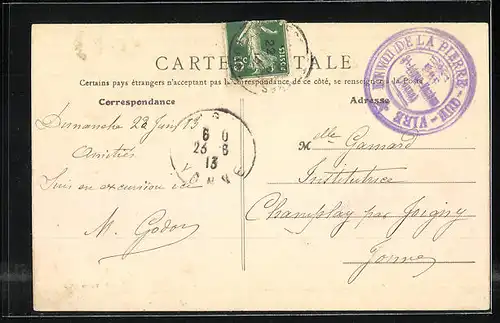 CARTE POSTALE
Certains pays étrangers n'acceptant pas la correspondance de ce côté, se renseigner à la Poste
Correspondance
Adresse
Dimanche 22 Juin 13
Amitiés
Suis en excursion ici
M. Godon
Mlle Gamard
Institutrice
Champlay par Joigny
Yonne
5c
POSTES
6 0
23-6
13
LA PIERRE
VIRE